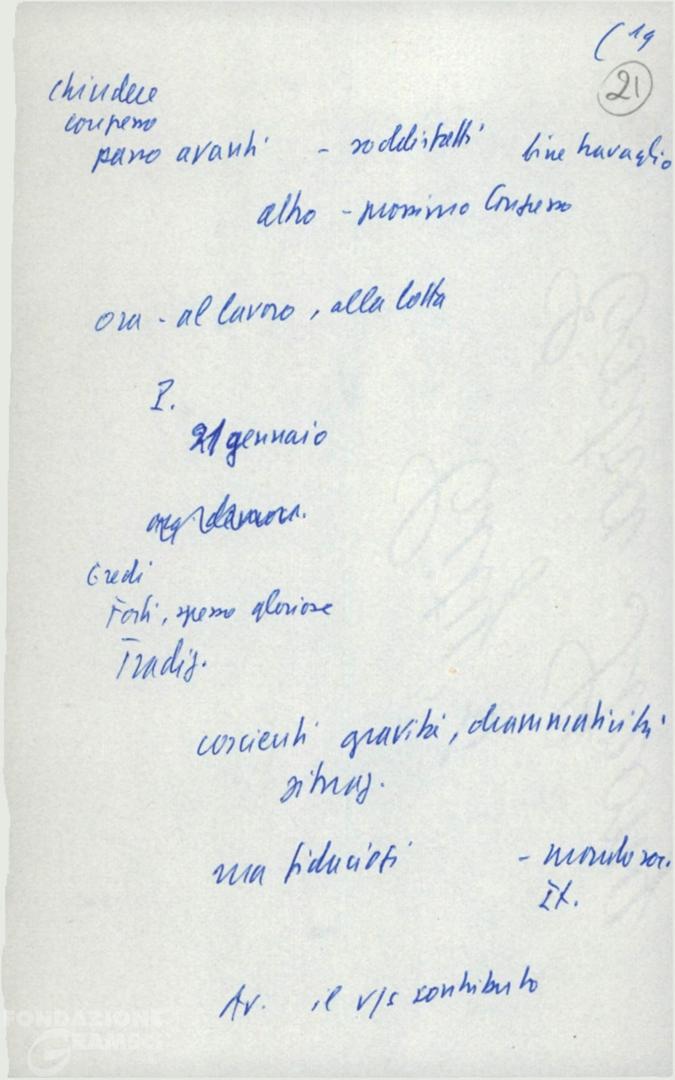 ( 19
21
chiudere
congresso
passo avanti - soddisfatti fine travaglio
altro - prossimo Congresso
ora - al lavoro, alla lotta
I.
21 gennaio
Eredi
Forti, spesso gloriose
Tradiz.
coscienti gravità, drammaticità
situaz.
ma fiduciosi - mondo soc.
It.
Av. il v/s contributo
FONDAZIONE
GRAMSCI